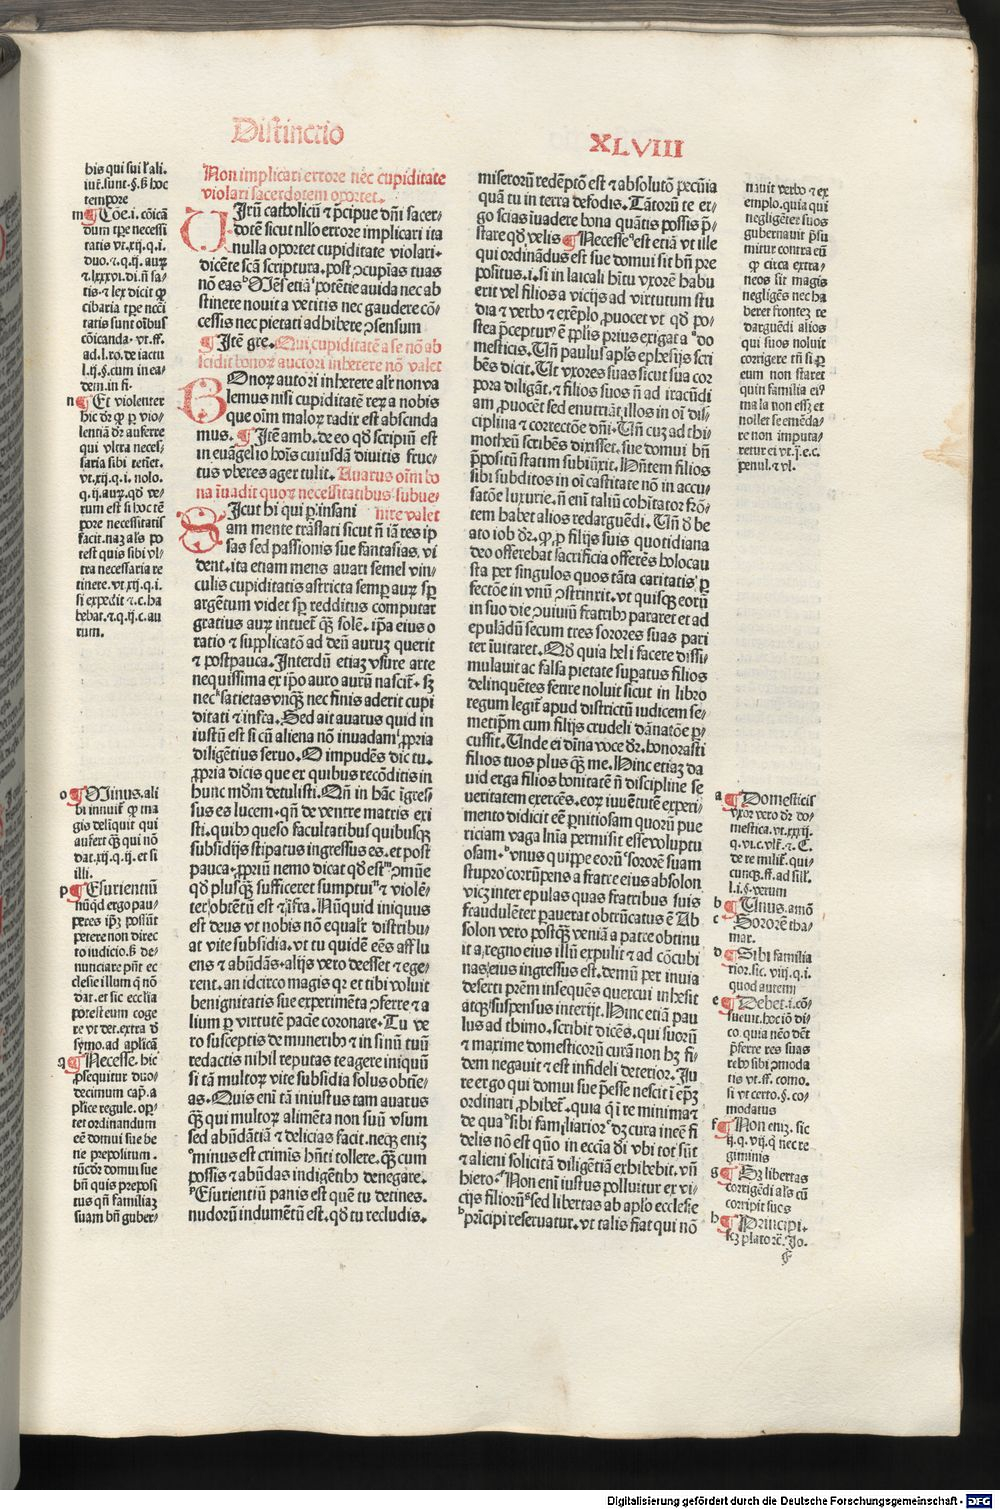 Distinctio
XLVIII
bis qui sui ł ali.
iur̄. sunt. §. s̄ hoc
tempore
m ¶ Cōe. i. cōicā
dum tp̄e necessi
tatis vt. xij. q. i.
duo. ⁊. q. ij. aurꝫ
⁊. lxxxvi. di. ñ sa-
tis. ⁊ lex dicit ꝙ
cibaria tp̄e ncc̄i
tatis sunt oībus
cōicanda. vt. ff.
ad. l. ro. de iactu
l. ij. §. cum in ea-
dem. in fi.
n ¶ Et violenter
hic dr̄ ꝙ ꝑ vio-
lentiā dr̄ auferre
qui vltra neces-
saria sibi retꝫet.
vt. xij. q. i. nolo.
q. ij. aurꝫ. qđ ve-
rum est ī hoc tē
pore necessitatis
facit. naꝫ als po
test quis sibi vl-
tra necessaria re
tinere. vt. xij. q. i.
si expedit ⁊. c. ha
bebat. ⁊. q. ij. c. au
rum.
o ¶ Minus. ali
bi innuiť ꝙ ma
gis delīquit qui
aufert qꝫ qui nō
dat. xij. q. ij. et si
illi.
p ¶ Esurientiū
nūqđ ergo pau-
peres ip̄ꝫ possūt
petere non direc
to iudicio. s̄ de-
nunciare pn̄t ec
clesie illum q̄ nō
dat. et sic ecclīa
potest eum coge
re vt det. extra đ
symo. ad aplicā
q ¶ Necesse. hic
ꝓsequitur duo-
decimum cap. a
plīce regule. opꝫ-
tet ordinandum
eē domui sue be
ne prepositum.
tūc dr̄ domui sue
bn̄ quis preposi
tus qn̄ familiaꝫ
suam bn̄ guber-
Non implicari errore nec cupiditate
violari sacerdotem oportet.
UTrū catholicū ⁊ p̄cipue dn̄i sacer-
dotē sicut nllo errore implicari ita
nulla oportet cupiditate violari.
dicēte scā scriptura. post ɔcupīas tuas
nō eas ᵐOīs etiāⁿpotētie auida nec ab
stinere nouit a vetitis nec gaudere cō-
cessis nec pietati adhibere ɔsensum
¶ Itē gre. Qui cupiditatē a se nō ab
scidit bonorꝫ auctori inherere nō valet
BOnorꝫ autori inherere alr̄ non va
lemus nisi cupiditatē rerꝫ a nobis
que oīm malorꝫ radix est abscinda
mus. ¶ Itē amb. de eo qđ scriptū est
in euāgelio hoīs cuiusdā diuitis fruc-
tus vberes ager tulit. Auarus oīm bo
na īuadit quorꝫ necessitatibus subue-
nire valet
SIcut hi qui ꝑ insani
am mente trāslati sicut ñ iā res ip
sas sed passionis sue fantasias. vi
dent. ita etiam mens auari semel vin-
culis cupiditatis astricta semꝑ aurꝫ sꝑ
argētum videt sꝑ redditus computat
gratius aurꝫ intuet̄ qꝫ solē. ip̄a eius o
ratio ⁊ supplicatō ad deū auruꝫ querit
⁊ post pauca. Interdū etiaꝫ vsure arte
nequissima ex ip̄o auro aurū nascit̄. sꝫ
nec satietas vnqꝫ nec finis aderit cupi
ditati ⁊ infra. Sed ait auarus quid in
iustū est si cū aliena nō inuadam ꝓpria
diligētius seruo. O impudēs dictu.
ꝓpria dicis que ex quibus recōditis in
hunc mdm̄ detulisti. Qn̄ in hāc īgres-
sus es lucem. qn̄ de ventre matris exi
sti. quibꝫ queso facultatibus quibusqꝫ
subsidijs stipatus ingressus es. et post
pauca. ꝓpriū nemo dicat qđ est ᵐɔmūe
qđ plusqꝫ sufficeret sumptuⁿ ⁊ violē-
ter obtētū est ⁊ ifra. Nūquid iniquus
est deus vt nobis nō equalr̄ distribu-
at vite subsidia. vt tu quidē eēs afflu
ens ⁊ abūdās. alijs vero deesset ⁊ ege-
rent. an idcirco magis qꝛ et tibi voluit
benignitatis sue experimēta ɔferre ⁊ a
lium ꝑ virtutē pacie coronare. Tu ve
ro susceptis de muneribꝫ ⁊ in sinū tuū
redactis nihil reputas te agere iniquū
si tā multorꝫ vite subsidia solus obtīe-
as. Quis enī tā iniustus tam auarus
qꝫ qui multorꝫ alimēta non suū vsum
sed abūdātiā ⁊ delicias facit. neqꝫ eniꝫ
ᵒminus est crimīs hn̄ti tollere. qꝫ cum
possis ⁊ abūdas indigētibꝫ denegare.
ᵖEsurientiū panis est quē tu detines.
nudorū indumētū est. qđ tu recludis.
miserorū redēptō est ⁊ absolutō pecūia
quā tu in terra defodis. Tātorū te er-
go scias iuadere bona quātis possis p̄-
stare qđ velis ¶ Necesseᑫest etiā vt ille
qui ordinādus est sue domui sit bn̄ pre
positus. i. si in laicali hītu vxorē habu
erit vel filios a vicijs ad virtutum stu
dia ⁊ verbo ⁊ exēplo ꝓuocet vt qđ po-
stea p̄ceptur̄ ē ꝑplis prius exigat aᵃdo
mesticis. Un̄ paulus apl̄s ephesijs scri
bēs dicit. Ut vxores suas sicut sua cor
pora diligāt. ⁊ filios suos ñ ad iracūdi
am ꝓuocēt sed enutriāt illos in oī dis-
ciplina ⁊ correctōe dn̄i. Un̄ cuꝫ ad thi-
motheū scribēs dixisset. sue domui bn̄
p̄positū statim subiūxit. Hn̄tem filios
sibi subditos in oī castitate nō in accu-
satōe luxurie. ñ enī taliū cohītator frō-
tem habet alios redarguēdi. Un̄ đ be
ato iob dr̄. ꝙ ꝓ filijs suis quotidiana
deo offerebat sacrificia offerēs holocau
sta per singulos quos tāta caritatis ꝑ
fectōe in vnū ɔstrinxit. vt quisqꝫ eorū
in suo die ɔuiuiū fratribꝫ pararet et ad
epulādū secum tres sorores suas pari
ter īuitaret. Qđ quia heli facere dissi-
mulauit ac falsa pietate supatus filios
delinquētes ferire noluit sicut in libro
regum legit̄ apud districtū iudicem se-
metip̄m cum filijs crudeli dānatōe ꝑ-
cussit. Unde ei dīna voce dr̄. honorasti
filios tuos plus qꝫ me. Hinc etiaꝫ da
uid erga filios bonitatē ñ discipline se
ueritatem exercēs. eorꝫ iuuētutē experi-
mento didicit eē ꝑnitiosam quorū pue
riciam vaga lnīa permisit esse voluptu
osam. ᵇvnus quippe eorū ᶜsororē suam
stupro corrūpens a fratre eius absolon
viciꝫ inter epulas quas fratribus suis
fraudulēter ꝑauerat obtrūcatus ē Ab
solon vero postqꝫ veniā a patre obtinu
it a regno eius illū expulit ⁊ ad cōcubi
nas eius ingressus est. demū per inuia
deserti preīm insequēs quercui inhesit
atqꝫ suspensus interijt. Hinc etiā pau
lus ad thimo. scribit dicēs. qui suorū
⁊ maxime domesticorū curā non hꝫ fi-
dem negauit ⁊ est infideli deterior. Iu
re ergo qui domui sue p̄esse nescit ī ep̄ꝫ
ordinari ꝓhibet̄. quia q̄ ī re minima ⁊
de quaᵈsibi familiariorᵉdꝫ cura ineē fi
delis nō est quō in ecclīa dī vbi tot sūt
⁊ alieni solicitā diligētiā exhibebit. vn̄
hiero. ᶠNon enī iustus polluitur ex vi-
cijs filiorū ᵍsed libertas ab aplo ecclesie
ʰprīcipi reseruatur. vt talis fiat qui nō
nauit verbo ⁊ ex
emplo. quia qui
negligēter suos
gubernauit p̄su
mitur contra eū
ꝙ circa extra-
neos sit magis
negligēs nec ha
beret frontez re
darguēdi alios
qui suos noluit
corrigere tn̄ si ꝑ
eum non staret
quin familia eiꝰ
mala non essꝫ et
nollet se emēda-
re non imputa-
retur ei vt. j. e. c.
penul. ⁊ vl.
a ¶ Domesticis
vxor vero dr̄ do-
mestica. vt. xxxij.
q. vi. c. vlt̄. ⁊. C.
de re milit̄. qui-
cunqꝫ. ff. ad sill̄.
l. i. §. verum
b ¶ Unus. amō
c ¶ Sororē tha-
mar.
d ¶ Sibi familia
rior. sic. viij. q. i.
quod autem
e ¶ Debet. i. cō-
sueuit. hoc iō di-
co. quia nēo det̄
p̄ferre res suas
rebꝫ sibi ɔmoda
tis vt. ff. como.
si vt certo. §. co-
modatus
f ¶ Non eniꝫ. sic
ij. q. vij. q̄ nec re
giminis
g ¶ Sꝫ libertas
corrigēdi als cū
corripit suos
h ¶ Principi.
sꝫ platorē. Io.